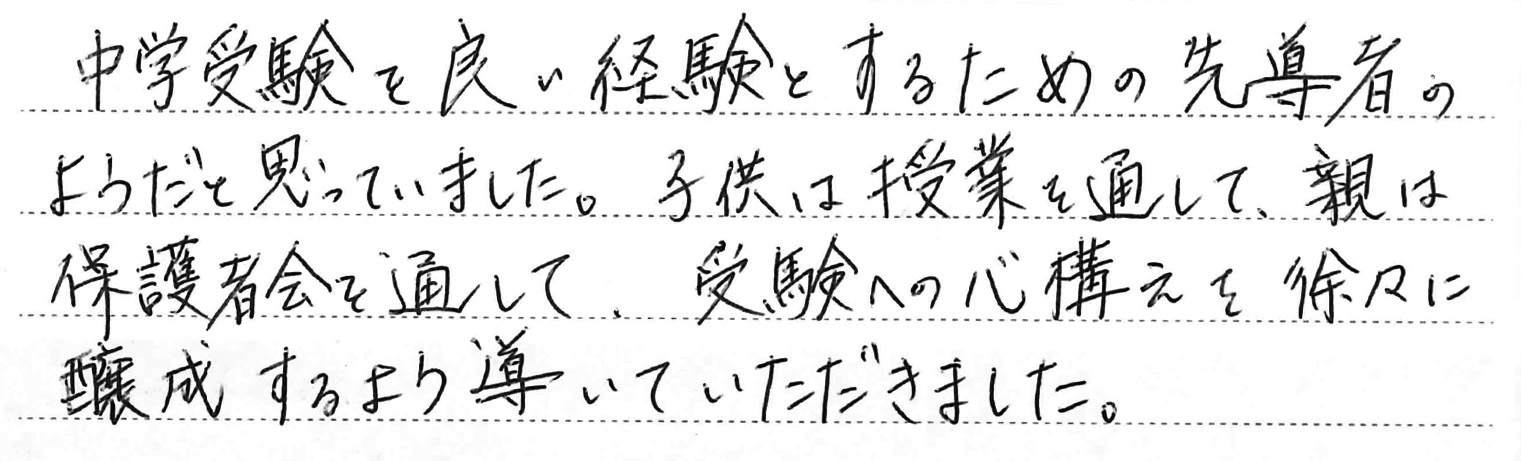 中学受験を良い経験とするための先導者の
ようだと思っていました。子供は授業を通して、親は
保護者会を通して、受験への心構えを徐々に
醸成するよう導いていただきました。